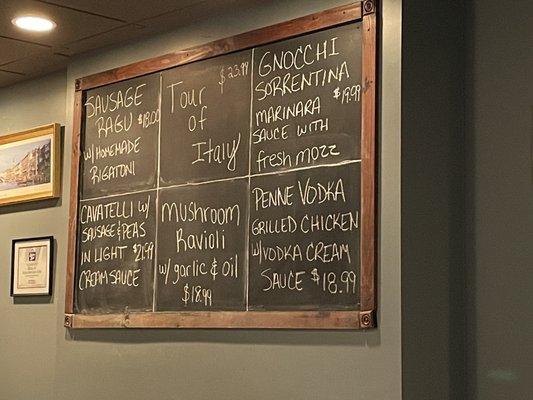 SAUSAGE
RAGU $18.00
W/ HOMEMADE
RIGATONI
$23.99
Tour
of
Italy
GNOCCHI
SORRENTINA
MARINARA $19.99
SAUCE WITH
fresh mozz
CAVATELLI W/
SAUSAGE & PEAS
IN LIGHT $21.99
CREAM SAUCE
Mushroom
Ravioli
w/ garlic & oil
$18.99
PENNE VODKA
GRILLED CHICKEN
W/VODKA CREAM
SAUCE $18.99